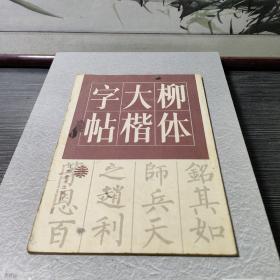 柳体
大楷
字帖
銘其如
師兵天
之趙利
恩百